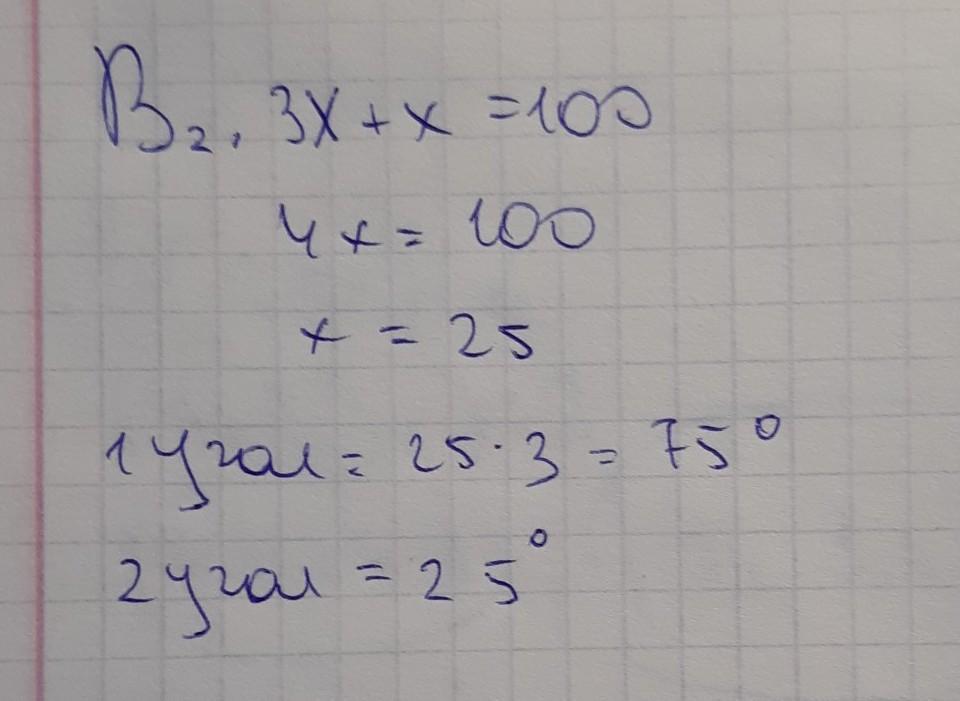 В2. 3x + x = 100
4x = 100
x = 25
1 угол = 25 · 3 = 75°
2 угол = 25°